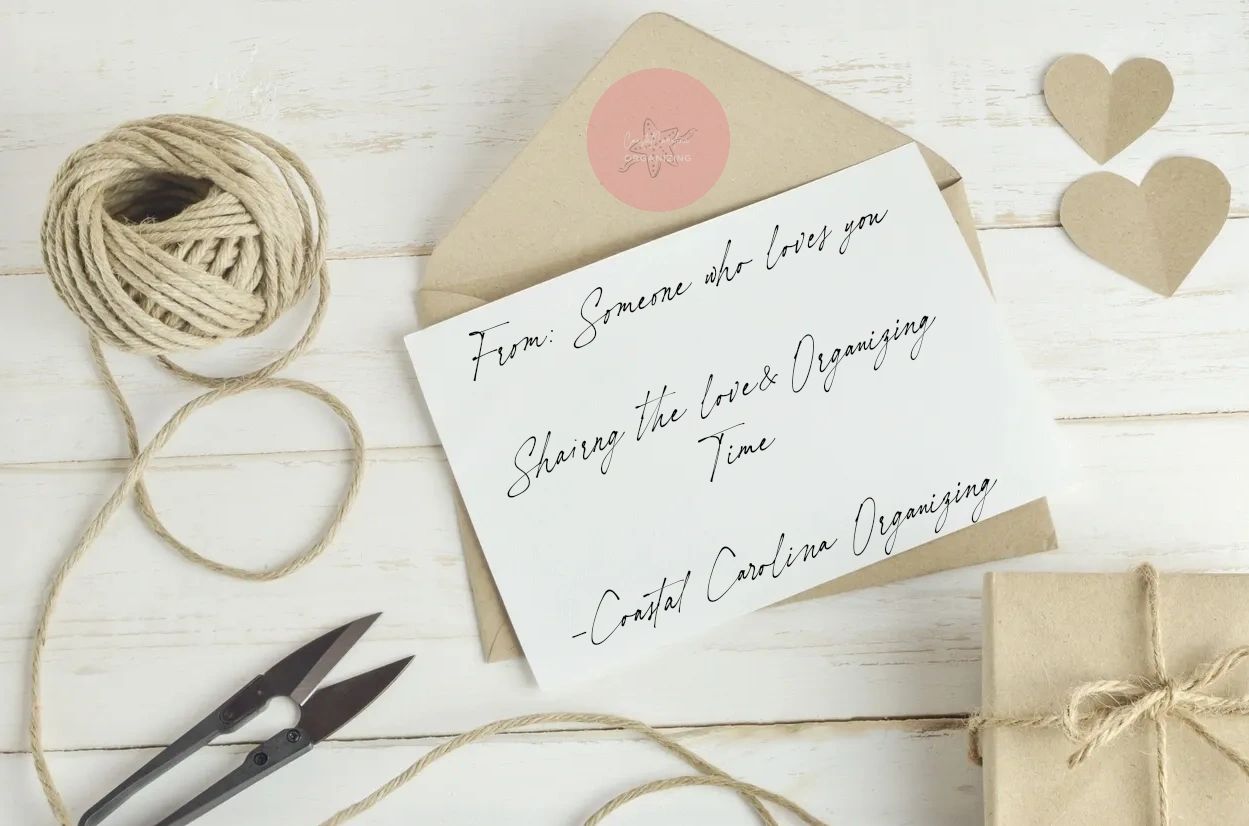 ORGANIZING
From: Someone who loves you
Shairng the love& Organizing
Time
-Coastal Carolina Organizing